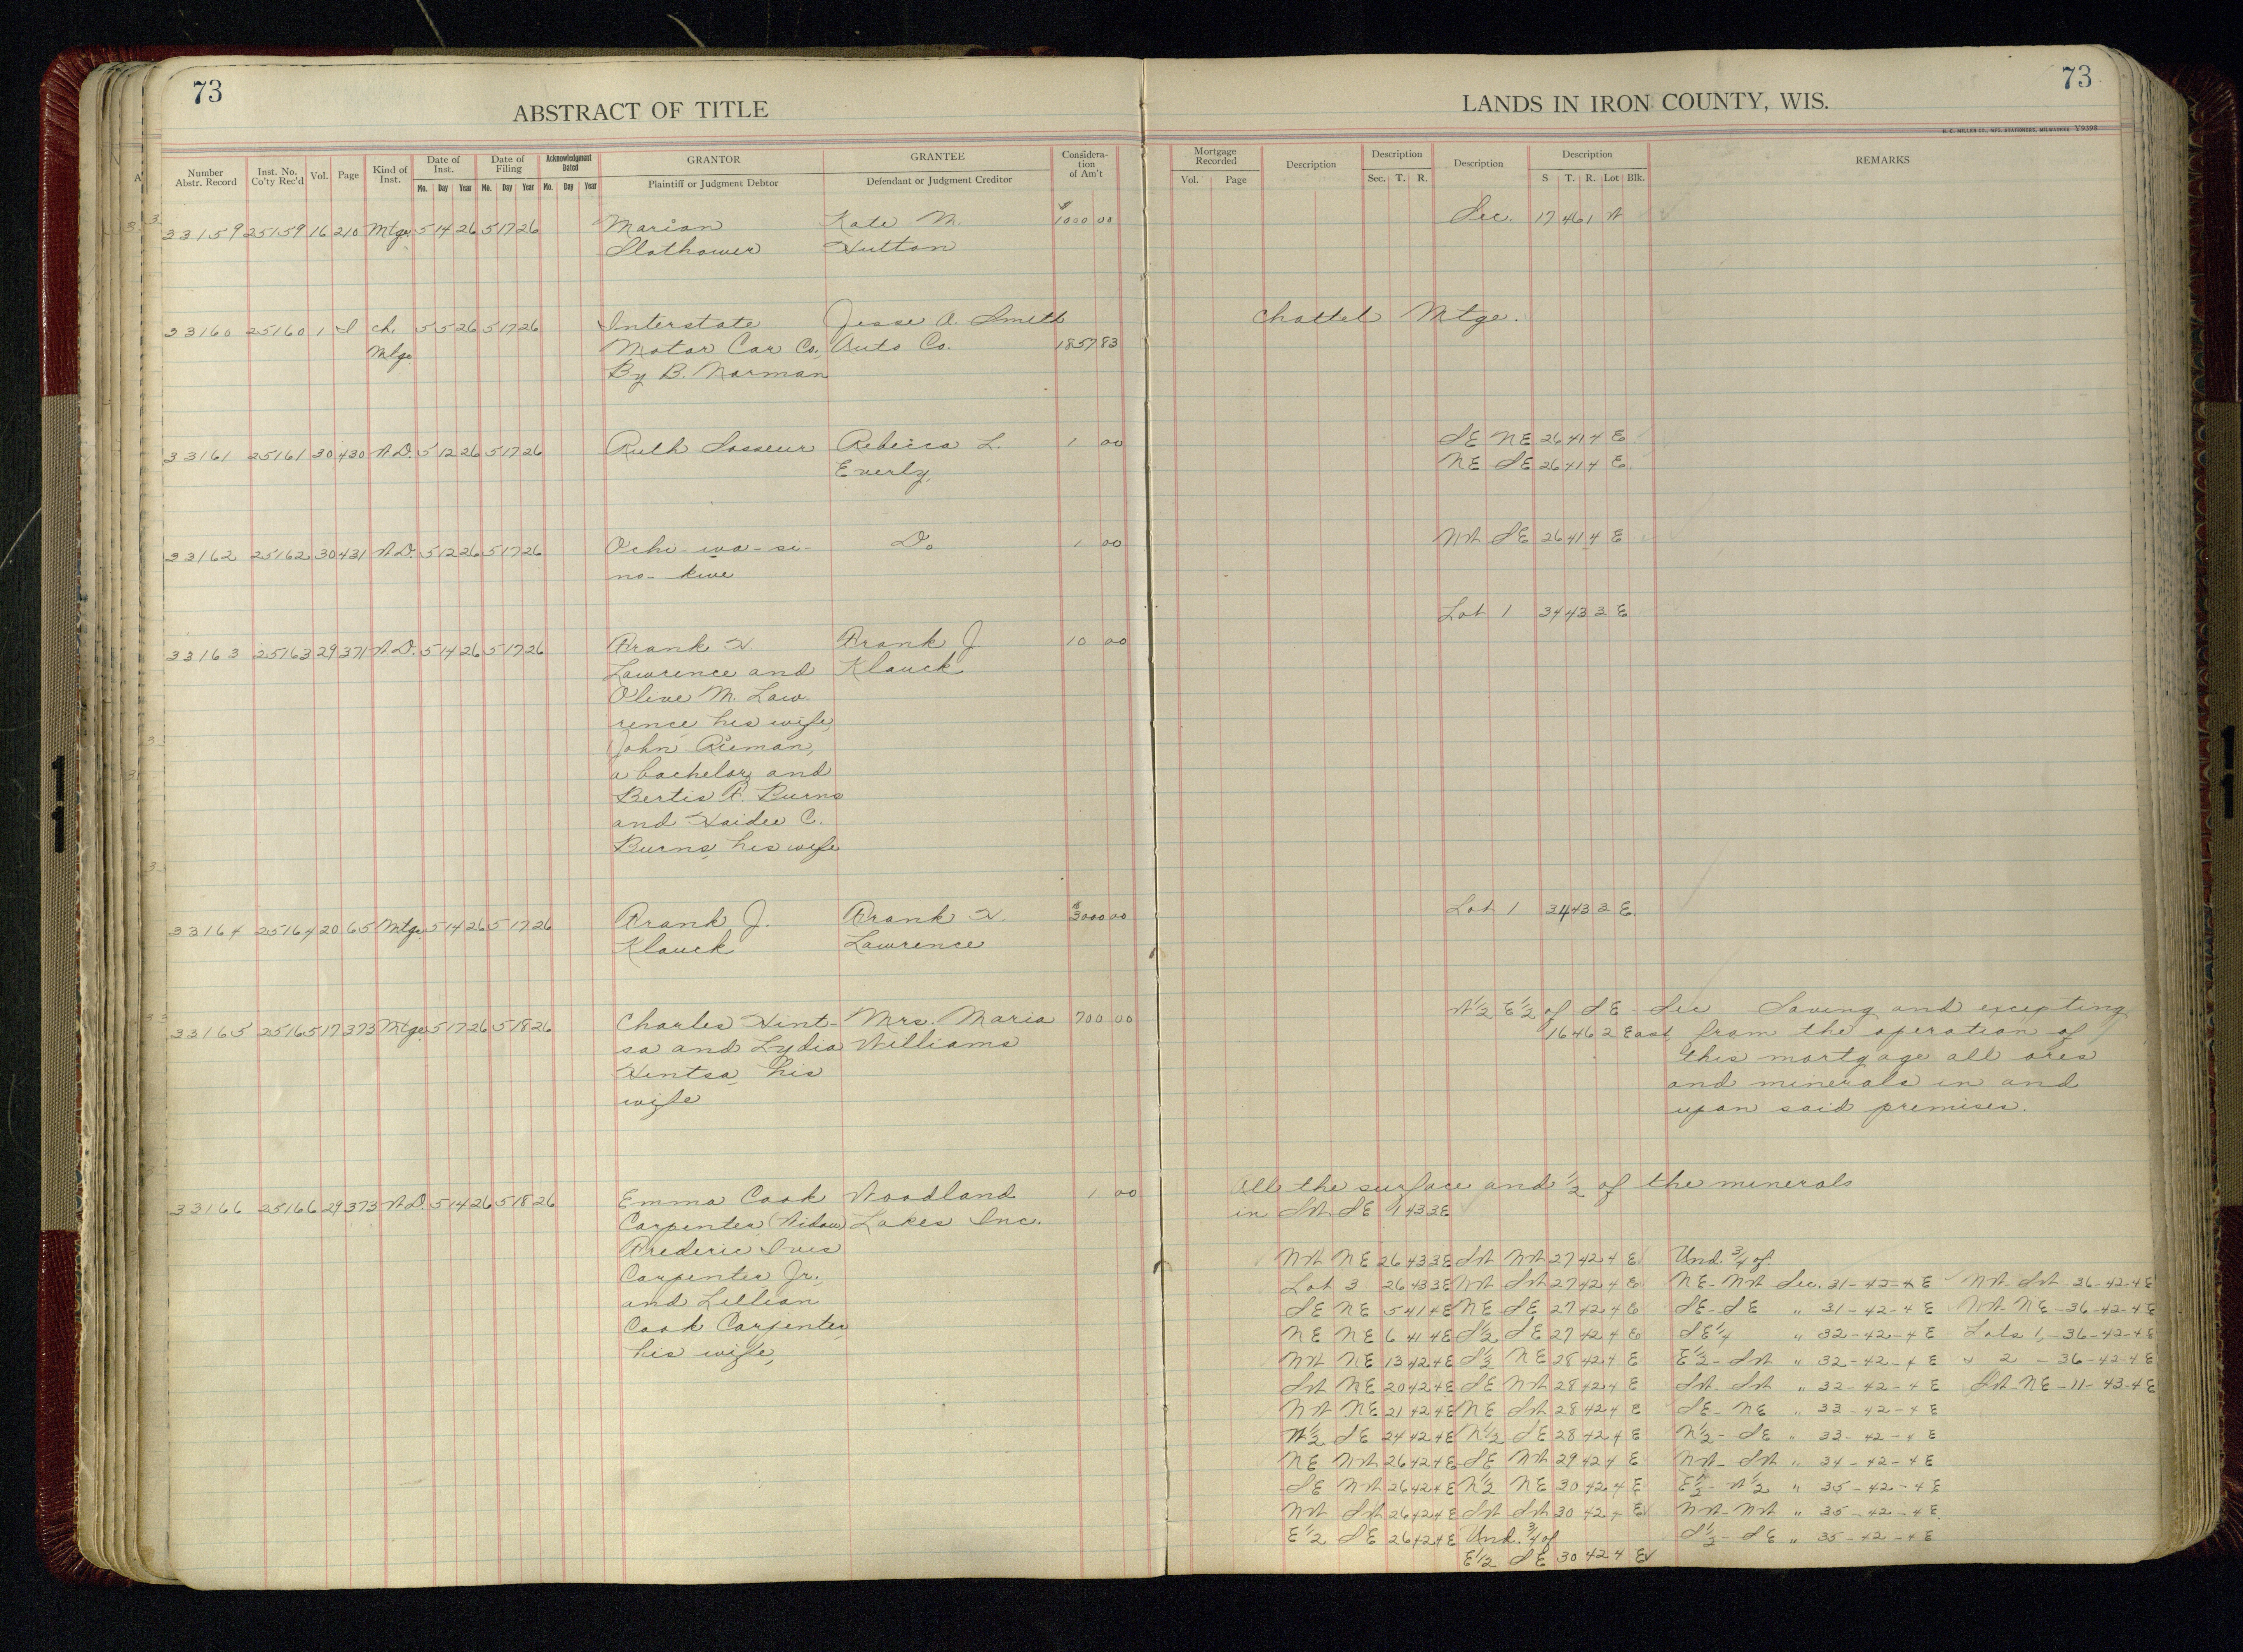 73
ABSTRACT OF TITLE
LANDS IN IRON COUNTY, WIS.
73
H. C. MILLER CO., MFG. STATIONERS, MILWAUKEE Y9398
Number Abstr. Record
Inst. No. Co'ty Rec'd
Vol.
Page
Kind of Inst.
Date of Inst.
Mo. Day Year
Date of Filing
Mo. Day Year
Acknowledgment Dated
Mo. Day Year
GRANTOR
Plaintiff or Judgment Debtor
GRANTEE
Defendant or Judgment Creditor
Considera-
tion
of Am't
Mortgage Recorded
Vol. Page
Description
Description
Sec. T. R.
Description
Description
S T. R. Lot Blk.
REMARKS
33159 25159 16 210 Mtge 5 14 26 5 17 26 Marion Kate M. $1000 00 Sec. 17 46 1 W
Slathower Hutton
33160 25160 1 I ch. 5 5 26 5 17 26 Interstate Jesse A. Smith Chattel Mtge.
Mtge. Motor Car Co. Auto Co. 1857 83
By B. Norman
33161 25161 30 430 W.D. 5 12 26 5 17 26 Ruth Sasseur Rebecca L. 1 00 SE NE 26 41 4 E
Everly, NE SE 26 41 4 E
33162 25162 30 431 W.D. 5 12 26 5 17 26 Ochi-wa-si- Do 1 00 NW SE 26 41 4 E
no-kwe
Lot 1 34 43 3 E
33163 25163 29 371 W.D. 5 14 26 5 17 26 Frank H Frank J 10 00
Lawrence and Klauck
Olive M. Law-
rence his wife,
John Rieman,
a bachelor, and
Bertis F. Burns
and Haidee C.
Burns, his wife
33164 25164 20 65 Mtge. 5 14 26 5 17 26 Frank J. Frank H. $3000 00 Lot 1 34 43 3 E.
Klauck Lawrence
33165 25165 17 373 Mtge. 5 17 26 5 18 26 Charles Hint- Mrs. Maria 700 00 W½ E½ of SE Sec Saving and excepting
sa and Lydia Williams 16 46 2 East, from the operation of
Hintsa, his this mortgage all ores
wife and minerals in and
upon said premises.
33166 25166 29 373 W.D. 5 14 26 5 18 26 Emma Cook Woodland 1 00 All the surface and ½ of the minerals
Carpenter (Widow) Lakes Inc. in SW SE 1 43 3 E
Frederic Ives
Carpenter Jr.,
and Lillian
Cook Carpenter,
his wife,
NW NE 26 43 3 E SW NW 27 42 4 E Und. ¾ of
Lot 3 26 43 3 E NW SW 27 42 4 E NE-NW Sec. 31-42-4 E NW-SW-36-42-4 E
SE NE 5 41 4 E NE SE 27 42 4 E SE-SE " 31-42-4 E NW-NE-36-42-4 E
NE NE 6 41 4 E S½ SE 27 42 4 E SE¼ " 32-42-4 E Lots 1,-36-42-4 E
NW NE 13 42 4 E S½ NE 28 42 4 E E½-SW " 32-42-4 E " 2 -36-42-4 E
SW NE 20 42 4 E SE NW 28 42 4 E SW-SW " 32-42-4 E SW-NE-11-43-4 E
NW NE 21 42 4 E NE SW 28 42 4 E SE-NE " 33-42-4 E
W½ SE 24 42 4 E N½ SE 28 42 4 E N½-SE " 33-42-4 E
NE NW 26 42 4 E SE NW 29 42 4 E NW-SW " 34-42-4 E
SE NW 26 42 4 E N½ NE 30 42 4 E E½-W½ " 35-42-4 E
NW SW 26 42 4 E SW SW 30 42 4 E NW-NW " 35-42-4 E.
E½ SE 26 42 4 E Und. ¾ of S½-SE " 35-42-4 E
E½ SE 30 42 4 E